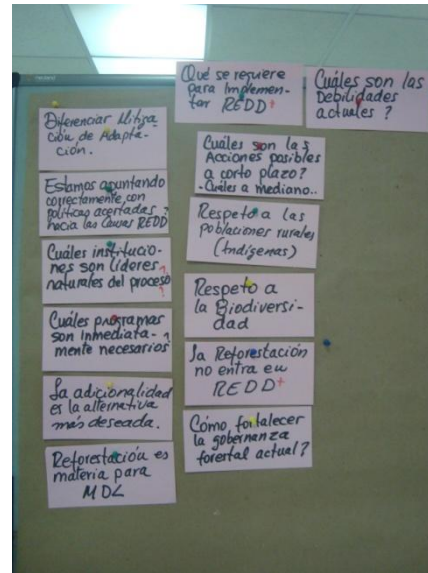 Diferenciar Mitiga
ción de Adapta-
ción.
Estamos apuntando
correctamente, con
políticas acertadas ?
hacia las Causas REDD
Cuáles institucio-
nes son líderes
naturales del proceso?
Cuáles programas
son inmediata- ?
mente necesarios
La adicionalidad
es la alternativa
más deseada.
Reforestación es
materia para
MDL
Qué se requiere
para Implemen-
tar REDD+
Cuáles son las
Acciones posibles
a corto plazo?
-Cuáles a mediano..
Respeto a las
poblaciones rurales
(Indígenas)
Respeto a
la Biodiversi-
dad
La Reforestación
no entra en
REDD+
Cómo fortalecer
la gobernanza
forestal actual?
Cuáles son las
Debilidades
actuales ?